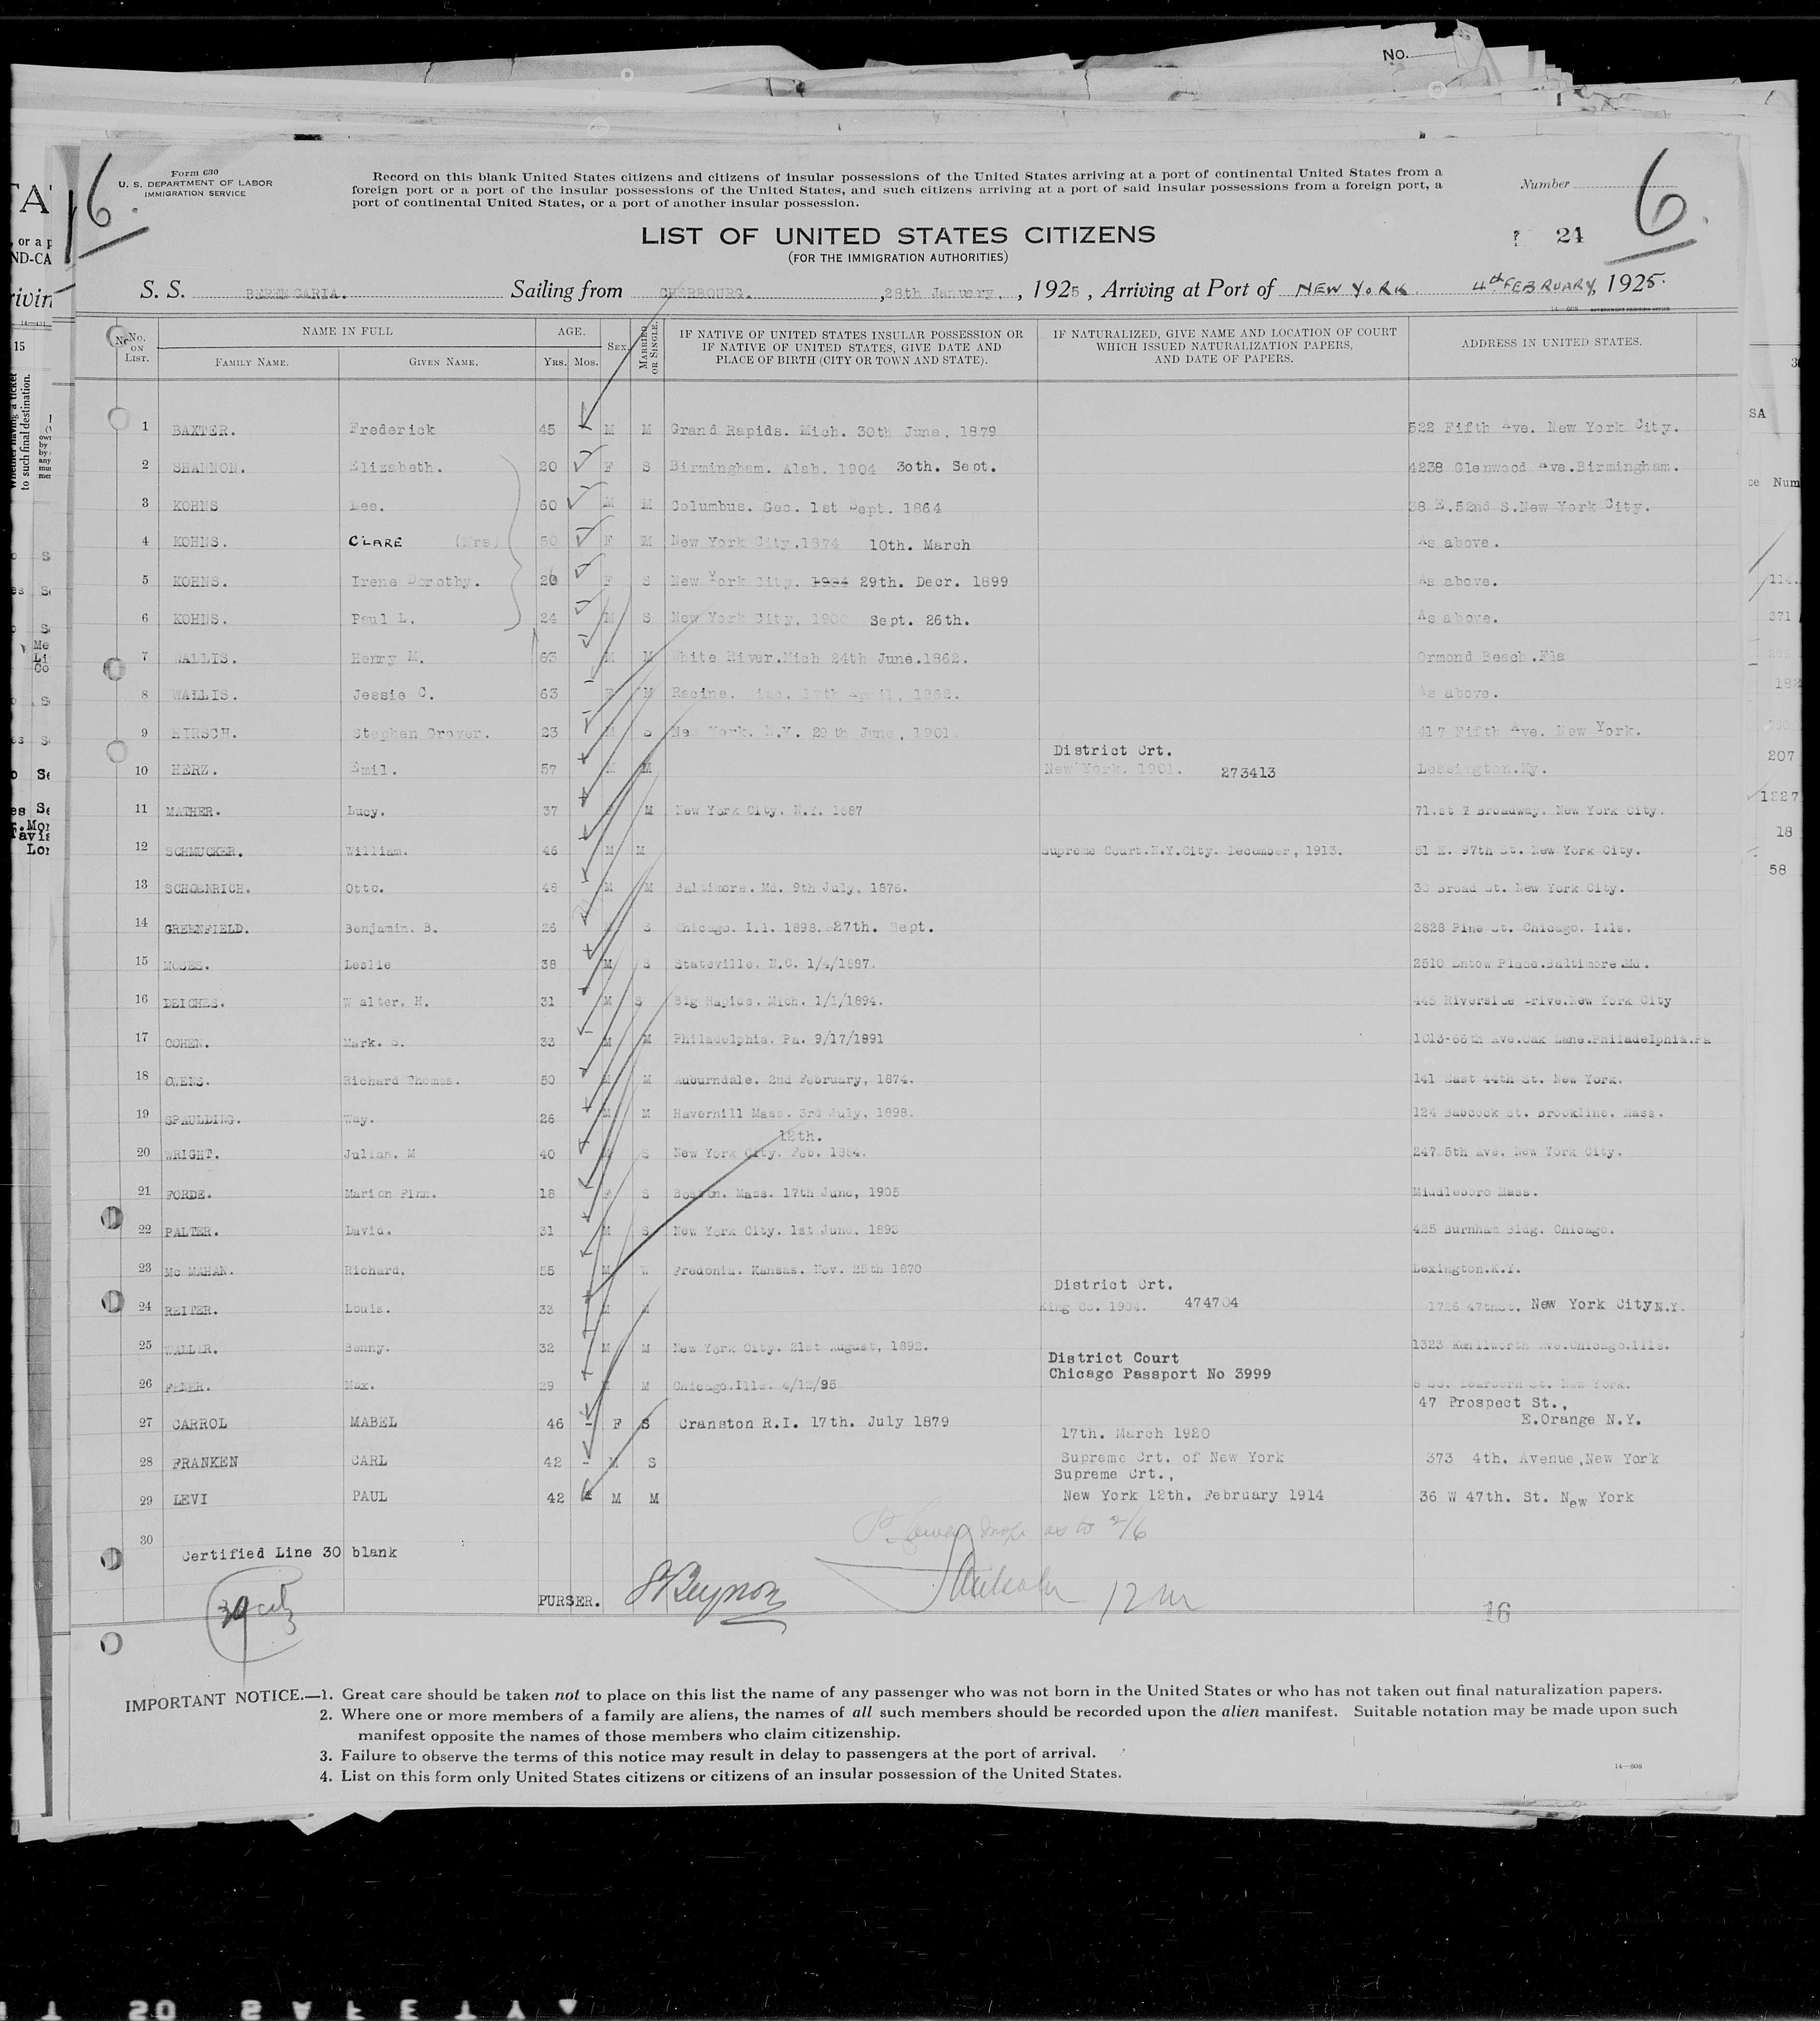 No.
6.
Form 630
U. S. DEPARTMENT OF LABOR
IMMIGRATION SERVICE
Record on this blank United States citizens and citizens of insular possessions of the United States arriving at a port of continental United States from a
foreign port or a port of the insular possessions of the United States, and such citizens arriving at a port of said insular possessions from a foreign port, a
port of continental United States, or a port of another insular possession.
Number
6.
LIST OF UNITED STATES CITIZENS
(FOR THE IMMIGRATION AUTHORITIES)
24
S. S. BERENGARIA. Sailing from CHERBOURG. ,28th January, , 1925 , Arriving at Port of NEW YORK. 4th FEBRUARY, 1925.
14—608 GOVERNMENT PRINTING OFFICE
No. ON LIST. NAME IN FULL AGE. SEX. MARRIED OR SINGLE. IF NATIVE OF UNITED STATES INSULAR POSSESSION OR IF NATIVE OF UNITED STATES, GIVE DATE AND PLACE OF BIRTH (CITY OR TOWN AND STATE). IF NATURALIZED, GIVE NAME AND LOCATION OF COURT WHICH ISSUED NATURALIZATION PAPERS, AND DATE OF PAPERS. ADDRESS IN UNITED STATES.
FAMILY NAME. GIVEN NAME. YRS. MOS.
1 BAXTER. Frederick 45 M M Grand Rapids. Mich. 30th June, 1879 522 Fifth Ave. New York City.
2 SHANNON. Elizabeth. 20 F S Birmingham. Alab. 1904 30th. Sept. 4238 Glenwood Ave.Birmingham.
3 KOHNS Lee. 60 M M Columbus. Geo. 1st Sept. 1864 38 E.52nd S.New York City.
4 KOHNS. CLARE (Mrs) 50 F M New York City.1874 10th. March As above.
5 KOHNS. Irene Dorothy. 26 F S New York City. 1904 29th. Decr. 1899 As above.
6 KOHNS. Paul L. 24 M S New York City, 1900 Sept. 26th. As above.
7 WALLIS. Henry M. 63 M M White River.Mich 24th June.1862. Ormond Beach.Fla
8 WALLIS. Jessie C. 63 F M Racine. Wisc. 17th April, 1862. As above.
9 HIRSCH. Stephen Grover. 23 M S New York. N.Y. 29th June, 1901. 417 Fifth Ave. New York.
District Crt.
10 HERZ. Emil. 57 M M New York. 1901. 273413 Lessington.Ky.
11 MATHER. Lucy. 37 M New York City, N.Y. 1887 71.st & Broadway. New York City.
12 SCHMUCKER. William. 46 M M Supreme Court.N.Y.City. December, 1913. 51 E. 97th St. New York City.
13 SCHOENRICH. Otto. 48 M M Baltimore. Md. 9th July, 1876. 30 Broad St. New York City.
14 GREENFIELD. Benjamin. B. 26 S Chicago. Ill. 1898. 27th. Sept. 2828 Pine St. Chicago. Ills.
15 MOSES. Leslie 38 M S Stateville. N.C. 1/4/1887. 2510 Entow Place.Baltimore.Md.
16 DEICHES. Walter. H. 31 M S Big Rapids. Mich. 1/1/1894. 445 Riverside Drive.New York City
17 COHEN. Mark. S. 33 M M Philadelphia. Pa. 9/17/1891 1013-66th Ave.Oak Lane.Philadelphia.Pa
18 OWENS. Richard Thomas. 50 M M Auburndale. 2nd February, 1874. 141 East 44th St. New York.
19 SPAULDING. Way. 26 M M Haverhill Mass. 3rd July, 1898. 124 Babcock St. Brookline. Mass.
12th.
20 WRIGHT. Julian. M 40 M S New York City. Feb. 1884. 247 5th Ave. New York City.
21 FORDE. Marion Finn. 18 F S Boston. Mass. 17th June, 1905 Middleboro Mass.
22 PALTER. David. 31 M S New York City. 1st June, 1893 425 Burnham Bldg. Chicago.
23 Mc MAHAN. Richard. 55 M W Fredonia. Kansas. Nov. 25th 1870 Lexington.K.Y.
District Crt.
24 REITER. Louis. 33 M M King Co. 1904. 474704 1726 47thSt. New York City N.Y.
25 WALLER. Benny. 32 M M New York City. 21st August, 1892. 1323 Kenilworth Ave.Chicago.Ills.
District Court
Chicago Passport No 3999
26 Max. 29 M Chicago.Ills. 4/12/95 8 So. Dearborn St. New York.
47 Prospect St.,
27 CARROL MABEL 46 - F S Cranston R.I. 17th. July 1879 E.Orange N.Y.
17th. March 1920
28 FRANKEN CARL 42 - M S Supreme Crt. of New York 373 4th. Avenue,New York
Supreme Crt.,
29 LEVI PAUL 42 M M New York 12th. February 1914 36 W 47th. St. New York
30
Certified Line 30 blank
PURSER.
12 m
16
IMPORTANT NOTICE.—1. Great care should be taken not to place on this list the name of any passenger who was not born in the United States or who has not taken out final naturalization papers.
2. Where one or more members of a family are aliens, the names of all such members should be recorded upon the alien manifest. Suitable notation may be made upon such
manifest opposite the names of those members who claim citizenship.
3. Failure to observe the terms of this notice may result in delay to passengers at the port of arrival.
4. List on this form only United States citizens or citizens of an insular possession of the United States.
14—608
SAFETY